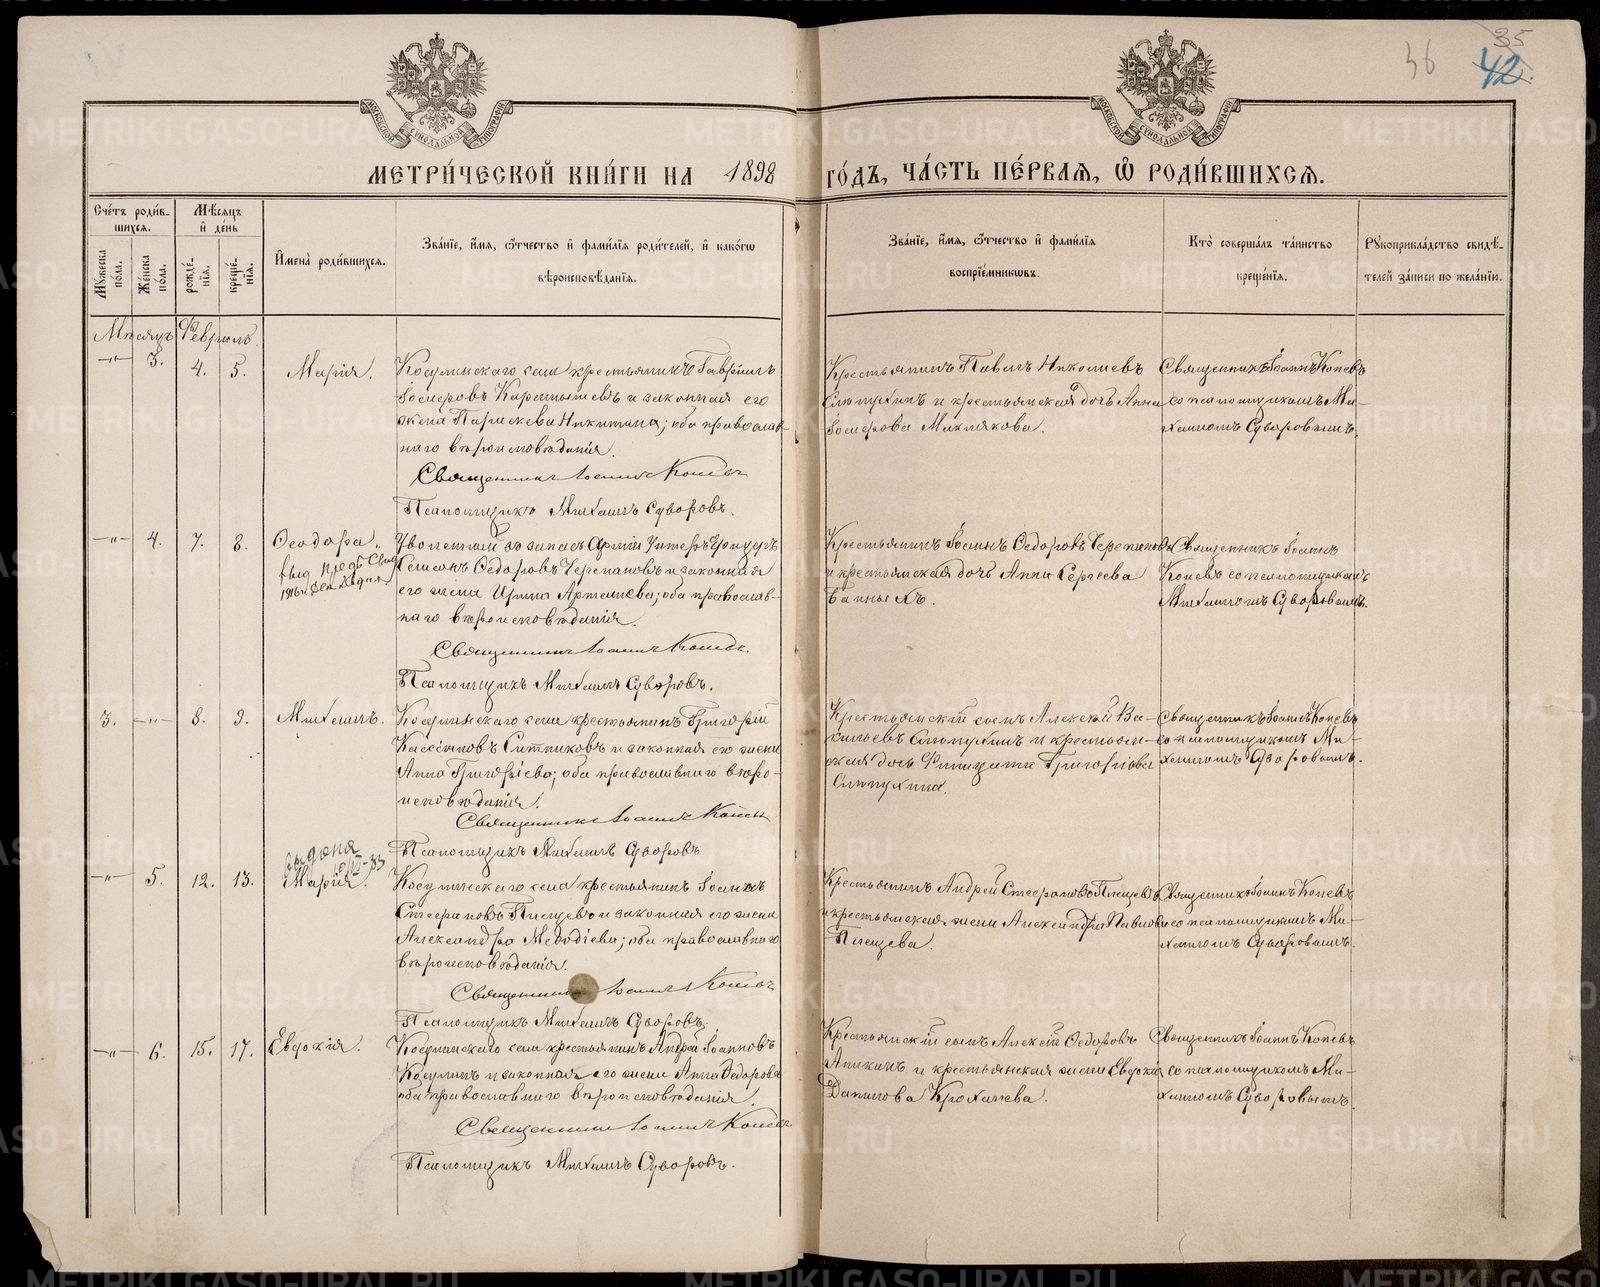 35
36
42.
МОСКОВСКОЙ СѴНОДАЛЬНОЙ ТИПОГРАФІИ
МОСКОВСКОЙ СѴНОДАЛЬНОЙ ТИПОГРАФІИ
МЕТРИ́ЧЕСКОЙ КНИ́ГИ НА 1898 ГО́ДЪ, ЧА́СТЬ ПЕ́РВАЯ, Ѽ РОДИ́ВШИХСЯ.
Сче́тъ роди́в-
шихся.
Мѣ́сяцъ
и҆ де́нь
Мꙋ́жеска по́ла.
Же́нска по́ла.
рожде́нїя.
креще́нїя.
И҆мена̀ роди́вшихся.
Зва́нїе, и҆́мя, ѻ҆́тчество и҆ фамилїя роди́телей, и҆ како́гѡ
вѣроисповѣ́данїя.
Зва́нїе, и҆́мя, ѻ҆́тчество и҆ фами́лїя
воспрїе́мникѡвъ.
Кто̀ соверша́лъ та́инство
креще́нїя.
Рꙋкоприкла́дство свидѣ́-
телей за́писи по жела́нїю.
Мѣсяцъ Февраль.
—„— 3. 4. 5. Марія.
Косулинскаго села крестьянинъ Гавріилъ
и законная его
жена Параскева Никитина; оба православ-
наго вѣроисповѣданія.
Священникъ Іоаннъ Копевъ
Псаломщикъ Михаилъ Суворовъ.
Крестьянинъ Павелъ Николаевъ
и крестьянская дочь Анна
Священникъ Іоаннъ Копевъ
со псаломщикомъ Ми-
хаиломъ Суворовымъ.
—„— 4. 7. 8. Ѳеодора.
1916 г.
Уволенный въ запасъ Арміи Унтеръ Офицеръ
Ѳедоровъ Черепановъ и законная
его жена Ирина Артемиева; оба православ-
наго вѣроисповѣданія.
Священникъ Іоаннъ Копевъ.
Псаломщикъ Михаилъ Суворовъ.
Крестьянинъ Іоаннъ Ѳедоровъ Черепановъ
и крестьянская дочь Анна Сергеева
Священникъ Іоаннъ
Копевъ со псаломщикомъ
Михаиломъ Суворовымъ.
3. —„— 8. 9. Михаилъ.
Косулинскаго села крестьянинъ Григорій
Ситниковъ и законная его жена
Анна Григорьева; оба православнаго вѣро-
исповѣданія.
Священникъ Іоаннъ Копевъ
Псаломщикъ Михаилъ Суворовъ
Крестьянскій сынъ Алексѣй Ва-
сильевъ и крестьян-
ская дочь Григорьева
Священникъ Іоаннъ Копевъ
со псаломщикомъ Ми-
хаиломъ Суворовымъ.
выдана
—„— 5. 12. 13. Марія.
Косулинскаго села крестьянинъ Іоаннъ
Стефановъ Плещевъ и законная его жена
Александра Меѳодіева; оба православнаго
вѣроисповѣданія.
Священникъ Іоаннъ Копевъ
Псаломщикъ Михаилъ Суворовъ.
Крестьянинъ Андрей Стефановъ Плещевъ
и крестьянская жена Александра Павлова
Плещева.
Священникъ Іоаннъ Копевъ
со псаломщикомъ Ми-
хаиломъ Суворовымъ.
—„— 6. 15. 17. Евдокія.
Косулинскаго села крестьянинъ Андрей Іоанновъ
Косулинъ и законная его жена Анна Ѳедорова
оба православнаго вѣроисповѣданія.
Священникъ Іоаннъ Копевъ
Псаломщикъ Михаилъ Суворовъ.
Крестьянскій сынъ Алексѣй Ѳедоровъ
и крестьянская жена Евдокія
Данилова Крохалева.
Священникъ Іоаннъ Копевъ
со псаломщикомъ Ми-
хаиломъ Суворовымъ.
METRIKI.GASO-URAL.RU